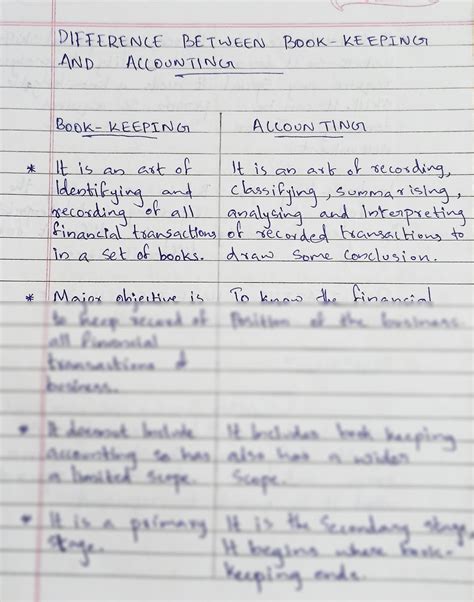 DIFFERENCE BETWEEN BOOK-KEEPING
AND ACCOUNTING
BOOK-KEEPING
* It is an art of
Identifying and
recording of all
financial transactions
in a set of books.
* Major objective is
to keep record of
all financial
transactions of
business.
* It doesnot Include
accounting so has
a limited scope.
* It is a primary
stage.
ACCOUNTING
It is an art of recording,
classifying, summarising,
analysing and Interpreting
of recorded transactions to
draw some conclusion.
To know the financial
Position of the business
It Includes book keeping
also has a wider
scope.
It is the Secondary stage,
It begins where book-
keeping ends.